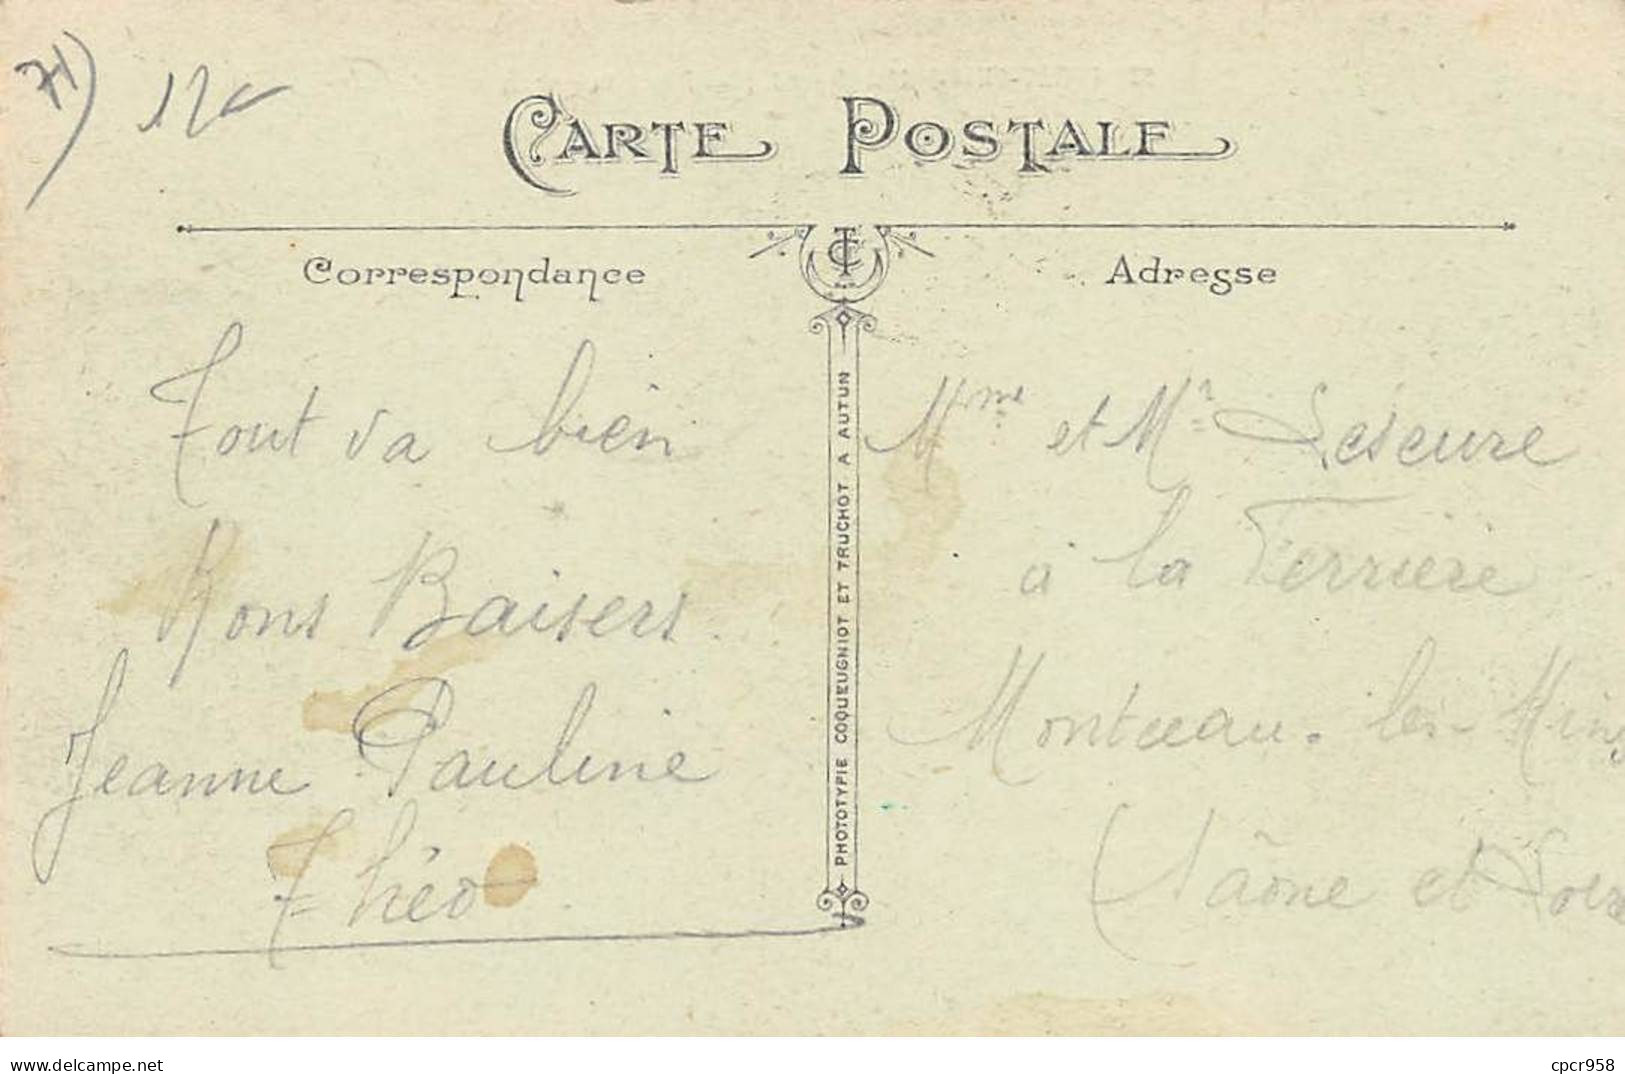 71)
12€
CARTE POSTALE
CTC
Correspondance
Adresse
Tout va bien
Bons Baisers
Jeanne Pauline
Théo
PHOTOTYPIE COQUEUGNIOT ET TRUCHOT A AUTUN
Mme et Mr Leseure
à la Ferrière
Montceau-les-Mines
(Saône et Loire
www.delcampe.net
cpcr958